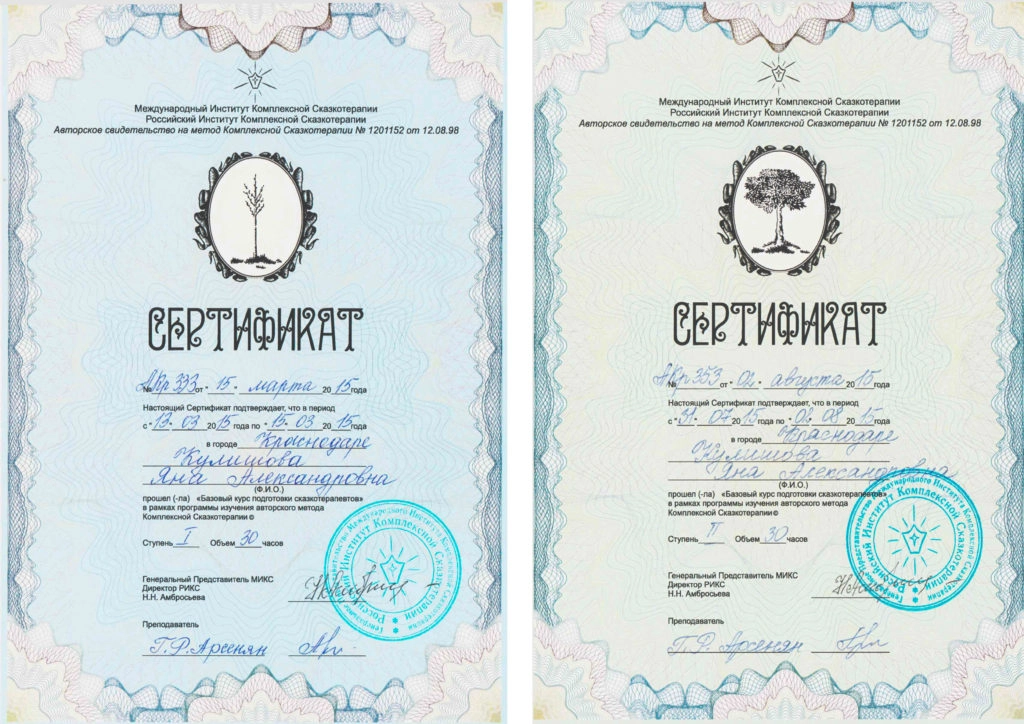 Международный Институт Комплексной Сказкотерапии
Российский Институт Комплексной Сказкотерапии
Авторское свидетельство на метод Комплексной Сказкотерапии № 1201152 от 12.08.98
СЕРТИФИКАТ
№ АКр 333 от " 15 " марта 2015 года
Настоящий Сертификат подтверждает, что в период
с "13" 03 2015 года по "15" 03 2015 года
в городе Краснодаре
Кулишова
Яна Александровна
(Ф.И.О.)
прошел (-ла) «Базовый курс подготовки сказкотерапевтов»
в рамках программы изучения авторского метода
Комплексной Сказкотерапии ©
Ступень I Объем 30 часов
Генеральный Представитель МИКС
Директор РИКС
Н.Н. Амбросьева
Преподаватель
Г.Р. Арсенян
Генеральное Представительство Международного Института Комплексной Сказкотерапии
Российский Институт Комплексной Сказкотерапии
Международный Институт Комплексной Сказкотерапии
Российский Институт Комплексной Сказкотерапии
Авторское свидетельство на метод Комплексной Сказкотерапии № 1201152 от 12.08.98
СЕРТИФИКАТ
№ АКр 353 от " 02 " августа 2015 года
Настоящий Сертификат подтверждает, что в период
с "31" 07 2015 года по "02" 08 2015 года
в городе Краснодаре
Кулишова
Яна Александровна
(Ф.И.О.)
прошел (-ла) «Базовый курс подготовки сказкотерапевтов»
в рамках программы изучения авторского метода
Комплексной Сказкотерапии ©
Ступень II Объем 30 часов
Генеральный Представитель МИКС
Директор РИКС
Н.Н. Амбросьева
Преподаватель
Г.Р. Арсенян
Генеральное Представительство Международного Института Комплексной Сказкотерапии
Российский Институт Комплексной Сказкотерапии